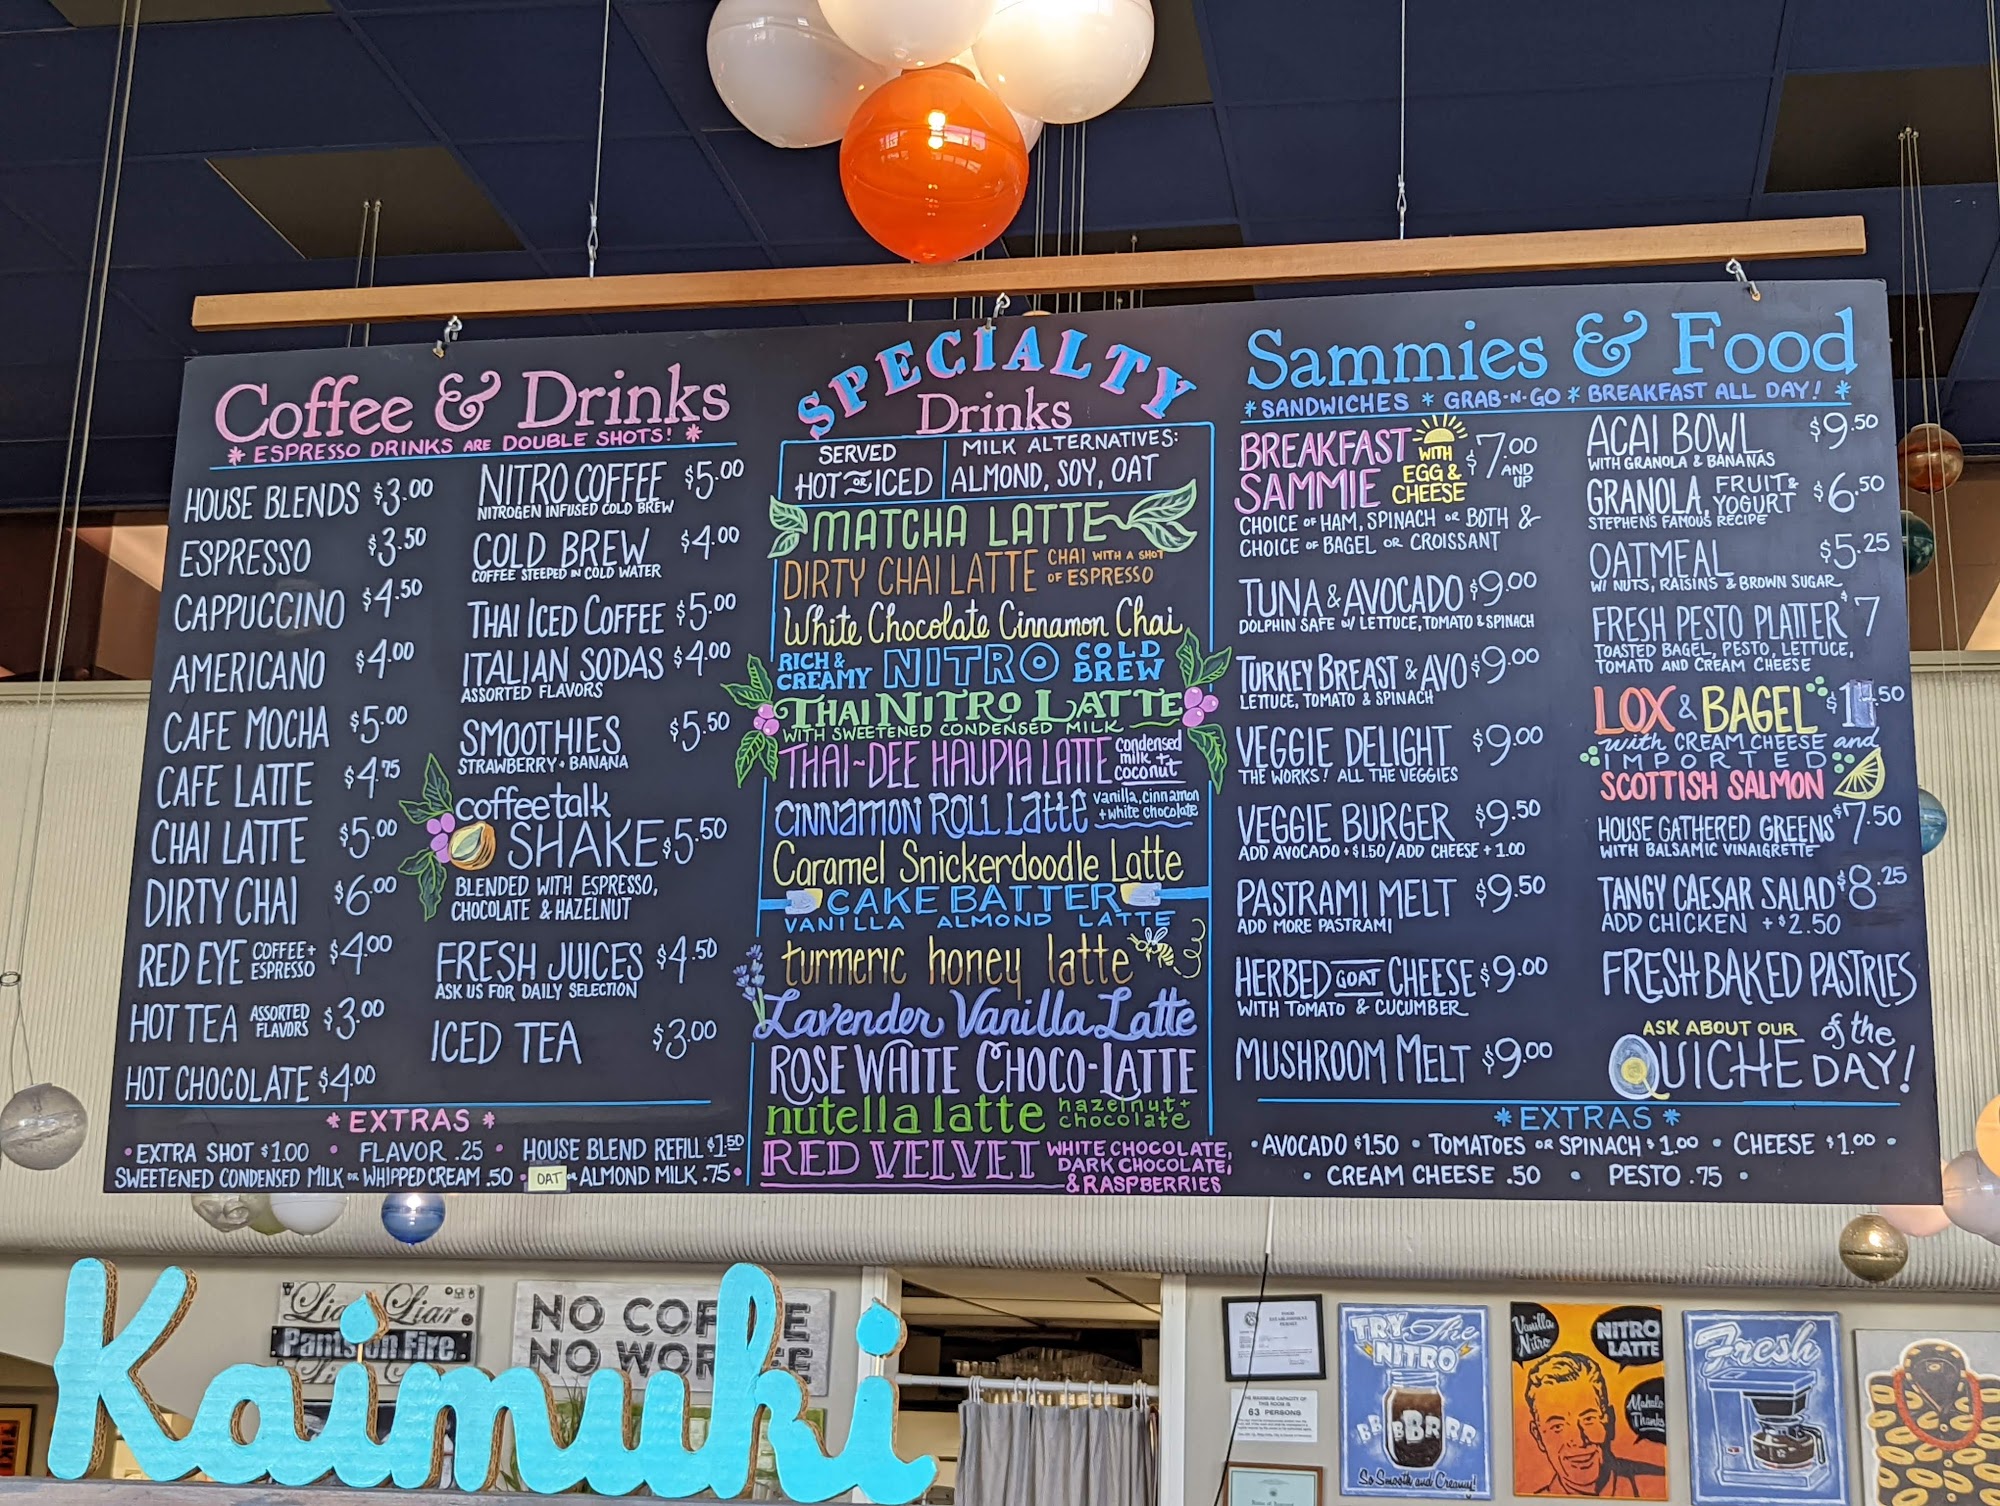 Coffee & Drinks
* ESPRESSO DRINKS ARE DOUBLE SHOTS! *
HOUSE BLENDS $3.00
ESPRESSO $3.50
CAPPUCCINO $4.50
AMERICANO $4.00
CAFE MOCHA $5.00
CAFE LATTE $4.75
CHAI LATTE $5.00
DIRTY CHAI $6.00
RED EYE COFFEE + ESPRESSO $4.00
HOT TEA ASSORTED FLAVORS $3.00
HOT CHOCOLATE $4.00
NITRO COFFEE $5.00
NITROGEN INFUSED COLD BREW
COLD BREW $4.00
COFFEE STEEPED IN COLD WATER
THAI ICED COFFEE $5.00
ITALIAN SODAS $4.00
ASSORTED FLAVORS
SMOOTHIES $5.50
STRAWBERRY + BANANA
coffeetalk
SHAKE $5.50
BLENDED WITH ESPRESSO,
CHOCOLATE & HAZELNUT
FRESH JUICES $4.50
ASK US FOR DAILY SELECTION
ICED TEA $3.00
* EXTRAS *
• EXTRA SHOT $1.00 • FLAVOR .25 • HOUSE BLEND REFILL $1.50
SWEETENED CONDENSED MILK OR WHIPPED CREAM .50 • OAT OR ALMOND MILK .75 •
SPECIALTY
Drinks
SERVED
HOT OR ICED
MILK ALTERNATIVES:
ALMOND, SOY, OAT
MATCHA LATTE
DIRTY CHAI LATTE CHAI WITH A SHOT OF ESPRESSO
White Chocolate Cinnamon Chai
RICH & CREAMY NITRO COLD BREW
THAI NITRO LATTE
WITH SWEETENED CONDENSED MILK
THAI-DEE HAUPIA LATTE condensed milk + coconut
CINNAMON ROLL Latte vanilla, cinnamon + white chocolate
Caramel Snickerdoodle Latte
CAKE BATTER
VANILLA ALMOND LATTE
turmeric honey latte
Lavender Vanilla Latte
ROSE WHITE CHOCO-LATTE
nutella latte hazelnut + chocolate
RED VELVET WHITE CHOCOLATE, DARK CHOCOLATE, & RASPBERRIES
Sammies & Food
* SANDWICHES * GRAB-N-GO * BREAKFAST ALL DAY! *
BREAKFAST SAMMIE WITH EGG & CHEESE $7.00 AND UP
CHOICE OF HAM, SPINACH OR BOTH &
CHOICE OF BAGEL OR CROISSANT
TUNA & AVOCADO $9.00
DOLPHIN SAFE W/ LETTUCE, TOMATO & SPINACH
TURKEY BREAST & AVO $9.00
LETTUCE, TOMATO & SPINACH
VEGGIE DELIGHT $9.00
THE WORKS! ALL THE VEGGIES
VEGGIE BURGER $9.50
ADD AVOCADO + $1.50/ADD CHEESE + 1.00
PASTRAMI MELT $9.50
ADD MORE PASTRAMI
HERBED GOAT CHEESE $9.00
WITH TOMATO & CUCUMBER
MUSHROOM MELT $9.00
ACAI BOWL $9.50
WITH GRANOLA & BANANAS
GRANOLA, FRUIT & YOGURT $6.50
STEPHENS FAMOUS RECIPE
OATMEAL $5.25
W/ NUTS, RAISINS & BROWN SUGAR
FRESH PESTO PLATTER $7
TOASTED BAGEL, PESTO, LETTUCE,
TOMATO AND CREAM CHEESE
LOX & BAGEL .50
with CREAM CHEESE and
IMPORTED
SCOTTISH SALMON
HOUSE GATHERED GREENS $7.50
WITH BALSAMIC VINAIGRETTE
TANGY CAESAR SALAD $8.25
ADD CHICKEN + $2.50
FRESH BAKED PASTRIES
ASK ABOUT OUR
QUICHE of the DAY!
* EXTRAS *
• AVOCADO $1.50 • TOMATOES OR SPINACH $1.00 • CHEESE $1.00 •
• CREAM CHEESE .50 • PESTO .75 •
Kaimuki
Liar Liar
Pants on Fire
NO COFFEE
NO WORKEE
63 PERSONS
TRY the
NITRO
BBBBRRR
So Smooth and Creamy!
Vanilla Nitro
NITRO LATTE
Mahalo Thanks
Fresh